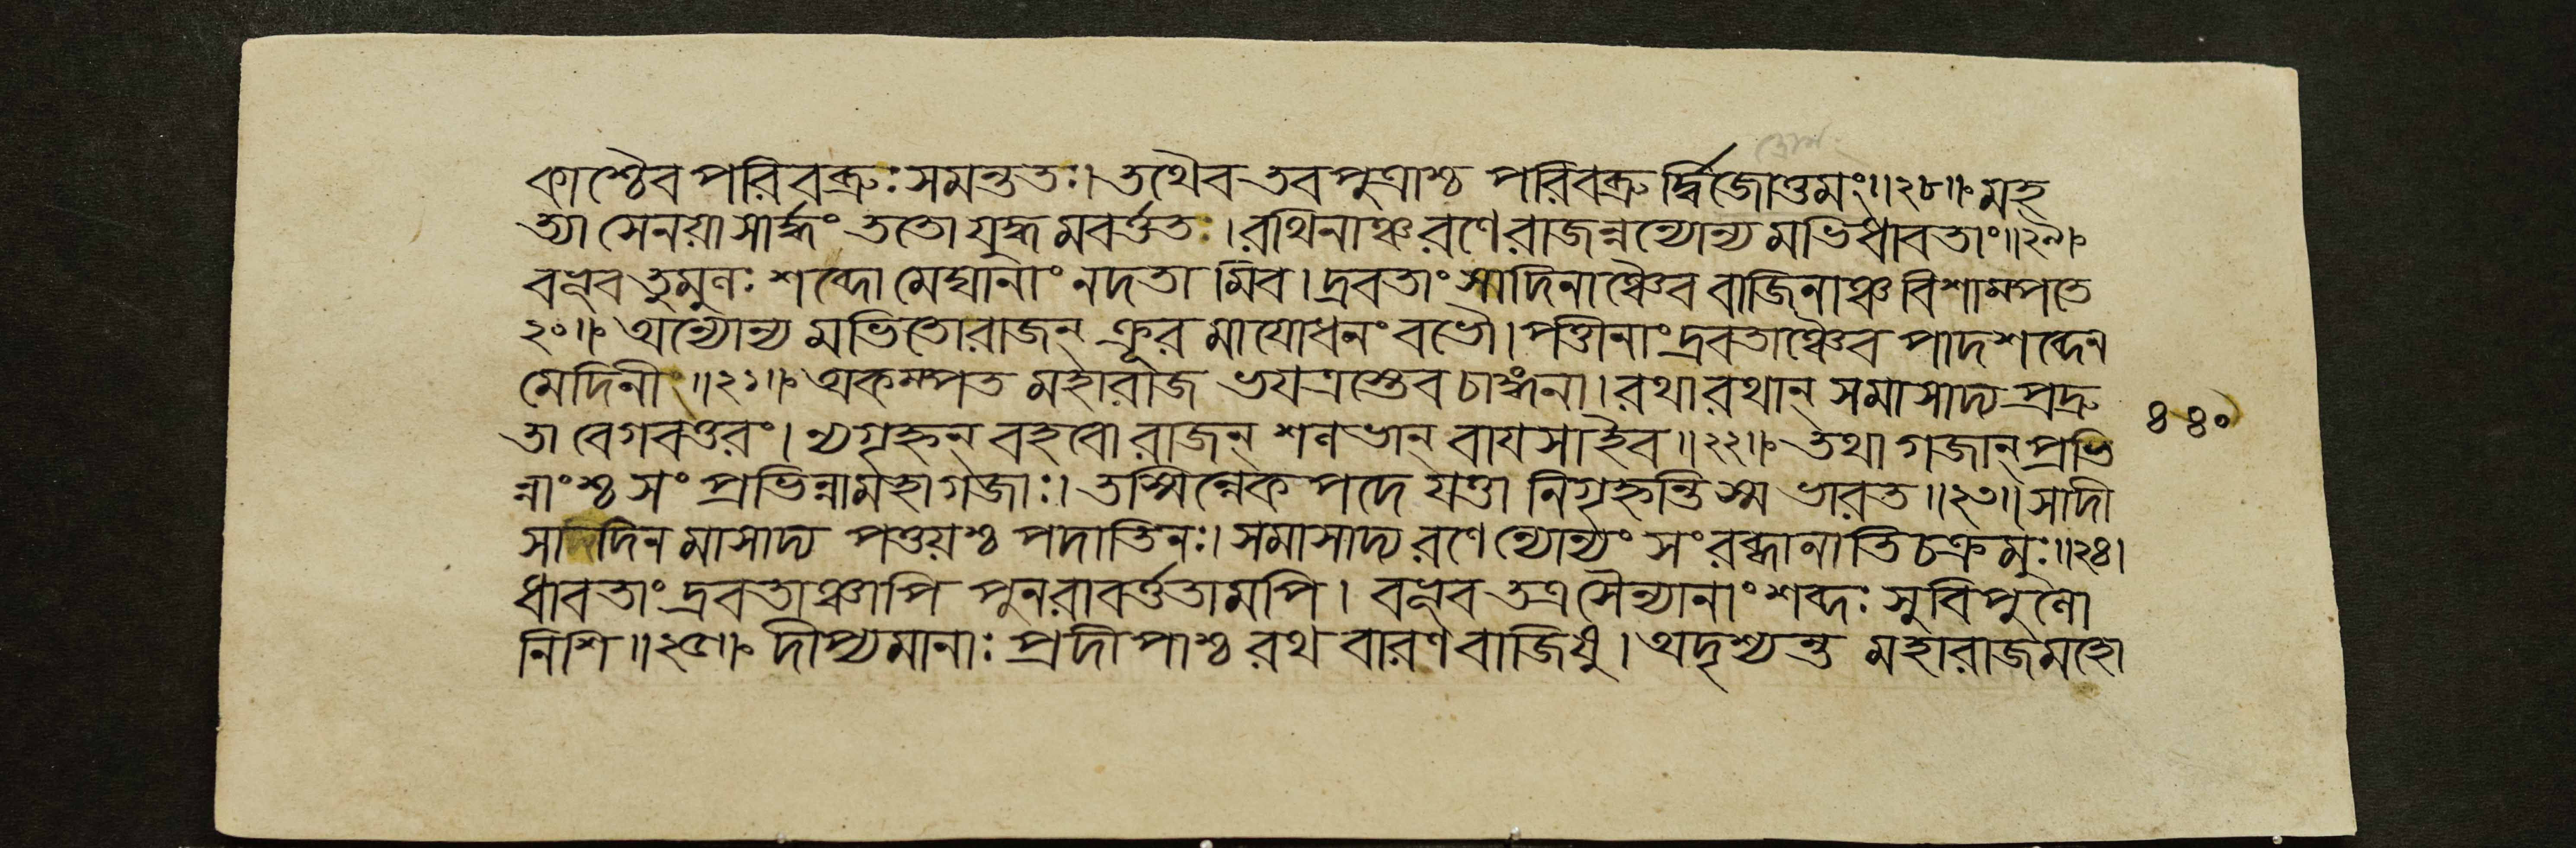 কাশ্চৈব পরিবব্রুঃ সমন্ততঃ। তথৈব তব পুত্রাশ্চ পরিবব্রুর্দ্বিজোত্তমং॥ ২৮॥ মহ
ত্যা সেনয়া সার্দ্ধং ততো যুদ্ধমবর্ত্ততঃ। রথিনাঞ্চ রণে রাজন্নন্যোন্যমভিধাবতাং॥ ২৯
বভূব তুমুলঃ শব্দো মেঘানাং নদতামিব। দ্রবতাং সাদিনাঞ্চৈব বাজিনাঞ্চ বিশাম্পতে
২০॥ অন্যোন্যমভিতো রাজন্ ক্রূরমাযোধনং বভৌ। পত্তীনাং দ্রবতাঞ্চৈব পাদশব্দেন
মেদিনী॥ ২১॥ অকম্পত মহারাজ ভযত্রস্তেব চাঙ্গনা। রথা রথান্ সমাসাদ্য প্রদ্রু
তা বেগবত্তরং। ন্যগৃহ্নন্ বহবো রাজন্ শলভান্ বাযসাইব॥ ২২॥ তথা গজান্ প্রভি
ন্নাংশ্চ সংপ্রভিন্নামহাগজাঃ। তস্মিন্নেকপদে যত্তা নিগৃহ্নন্তি স্ম ভারত॥ ২৩॥ সাদী
সাদিনমাসাদ্য পত্তয়শ্চ পদাতিনঃ। সমাসাদ্য রণেন্যোন্যং সংরব্ধানাতিচক্রমুঃ॥ ২৪।
ধাবতাং দ্রবতাঞ্চাপি পুনরাবর্ত্ততামপি। বভূব তত্র সৈন্যানাং শব্দঃ সুবিপুলো
নিশি॥ ২৫॥ দীপ্যমানাঃ প্রদীপাশ্চ রথবারণবাজিষু। অদৃশ্যন্ত মহারাজ মহো
৪৪০